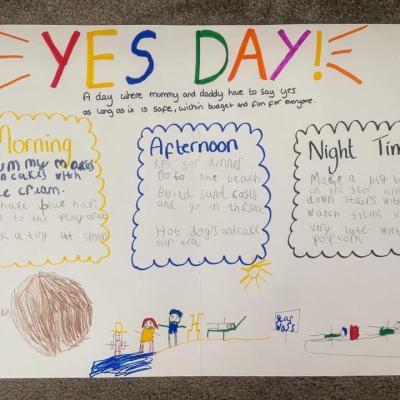 YES DAY!
A day where mummy and daddy have to say yes
as long as it is safe, within budget and fun for everyone.
Morning
mummy makes
pancakes with
ice cream.
have blue hair
to the playarea
a toy at
Afternoon
KFC for dinner
Go to the beach
Build sand
and go in the sea
Hot dogs and cake
for tea
Night Tim
Make a
on the
down stairs with
watch films
very late with
popcorn
Star
Wars